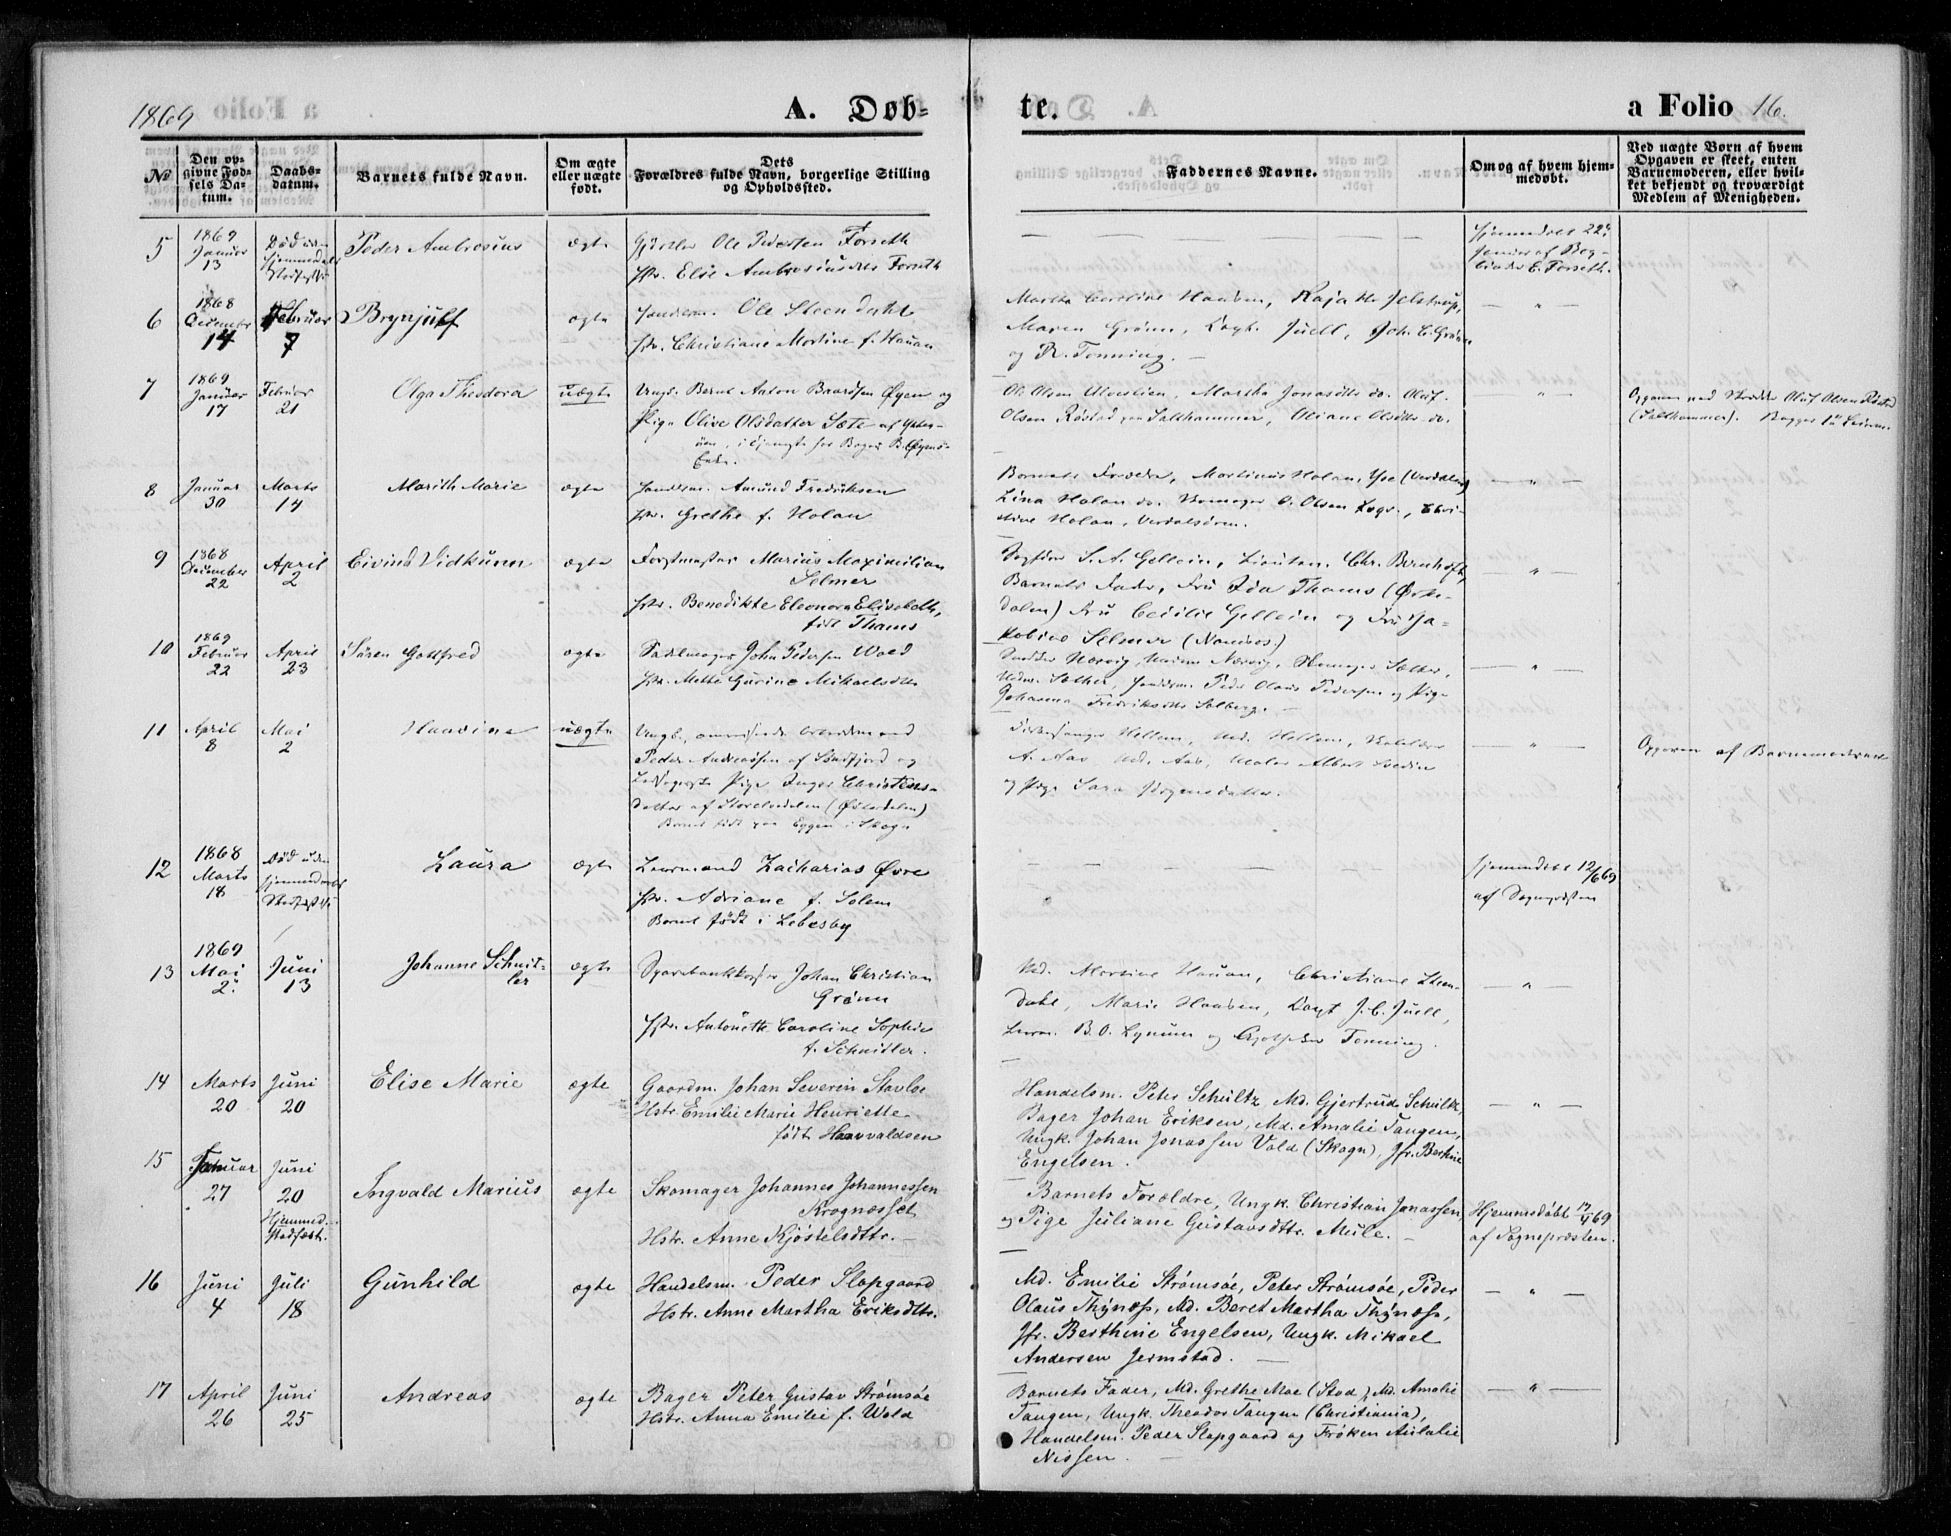 1869
A. Døb-
te.
a Folio 16.
No
Den op-
givne Fød-
sels Da-
tum.
Daabs-
datum.
Barnets fulde Navn.
Om ægte
eller uægte
født.
Dets
Forældres fulde Navn, borgerlige Stilling
og Opholdssted.
Faddernes Navne.
Om og af hvem hjem-
medøbt.
Ved uægte Børn af hvem
Opgaven er skeet, enten
Barnemoderen, eller hvil-
ket bekjendt og troværdigt
Medlem af Menigheden.
5
1869
Januar
13
Død
Peder Ambrosius
ægte
Ole Pedersen Forseth
Hstr. Elise Ambrosiusdtr Forseth
Hjemmedøbt 22.
Januar af
E. Forseth.
6
1868
December
14
Februar
7
Brynjulf
ægte
Handelsm. Ole Steen
Hstr. Christiane Martine f. Hauan
Martha Caroline Hauan, Kaja
Maren Grønn, Juell, Joh. C. Grønn
og Tonning. —
— " —
7
1869
Januar
17
Februar
21
Olga Theodora
uægte
Ungk. Bernt Anton Baardsen Øyen og
Pige Olive Olsdatter Sæte af Ytter-
øen,
Enke.
Ole Olsen Martha Jonasdtr do. Oluf
Olsen Røstad paa Salthammer, Oliane Olsdtr do.
— " —
Opgaven ved Oluf Olsen Røstad
(Salthammer).
8
Januar
30
Marts
14
Marith Marie
ægte
Handelsm. Amund Fredriksen
Hstr. Grethe f. Holan
Barnets Forældre, Martinus Holan, (Verdalen)
Lina Holan do. Skomager O. Olsen
Holan, Verdalsøren.
— " —
9
1868
December
22
April
2
Eivind Vidkunn
ægte
Forstmester Marius Maximilian
Selmer
Hstr. Benedikte Eleonora Elisabeth,
født Thams
Sagfører S. A. Gellein, Lieutn. Chr. Bernhoft,
Barnets Fader, Fru Ida Thams (Ørke-
dalen) Fru Cecilie Gellein og Fru Ja-
kobine Selmer (Namsos)
— " —
10
1869
Februar
22
April
23
Søren Gottfred
ægte
Sadelmager John Pedersen Wold
Hstr. Mette Gurine Mikaelsdtr
Nervig, Nervig, Skomager Sæther,
Sæther, Handelsm. Peder Olaus Pedersen og Pige
Johanna Fredriksdtr Solberg. —
— " —
11
April
8
Mai
2
Haavine
uægte
Ungk.
Peder Andreassen af Stadsfjord og
Pige Inger Christens-
datter af Storelvedalen (Østerdalen)
Barnet født paa Eggen i Skogn
Kirkesanger Hellem, Md. Hellem,
A. Aas, Md. Aas, Maler Albert
og Pige Sara Jørgensdatter.
— " —
Opgaven af Barnemoderen
12
1868
Marts
18
Død
Laura
ægte
Zacharias Øvre
Hstr. Adriane f. Solem
Barnet født i Lebesby
Hjemmedøbt 12/6 69
af Sognepræsten
13
1869
Mai
2.
Juni
13
Johanne Schnit-
ler
ægte
Sparebankkasserer Johan Christian
Grønn
Hstr. Antonette Caroline Sophie
f. Schnitler.
Md. Martine Hauan, Christiane Steen-
dahl, Marie Hauan, J. C. Juell,
B. O. Lynum og Tonning.
— " —
14
Marts
20
Juni
20
Elise Marie
ægte
Gaardm. Johan Severin Stavlee
Hstr. Emilie Marie Henriette
født Haavaldsen
Handelsm. Peter Schultz, Md. Gjertrude Schultz,
Bager Johan Eriksen, Md. Amalie Tangen,
Ungk. Johan Jonassen Vold (Skogn), Jfr. Berthine
Engelsen.
— " —
15
Januar
27
Juni
20
Hjemmed.
Stadfæst.
Ingvald Marius
ægte
Skomager Johannes Johannessen
Krognæsset
Hstr. Anne Kjøstelsdttr. —
Barnets Forældre, Ungk. Christian Jonassen,
og Pige Juliane Gustavsdttr. Mule. —
Hjemmedøbt 69
af Sognepræsten.
16
Juni
4
Juli
18
Gunhild
ægte
Handelsm. Peder Slapgaard
Hstr. Anne Martha Eriksdttr.
Md. Emilie Strømsøe, Peter Strømsøe, Peder
Olaus Thynæss, Md. Beret Martha Thynæss,
Jfr. Berthine Engelsen, Ungk. Mikael
Andersen Jermstad. —
— " —
17
April
26
Juni
25
Andreas
ægte
Bager Peter Gustav Strømsøe
Hstr. Anna Emilie f. Wold
Barnets Fader, Md. Grethe Moe (Stod), Md. Amalie
Tangen, Ungk. Theodor Tangen (Christiania),
Handelsm. Peder Slapgaard og Frøken Aulalie
Nissen. —
— " —